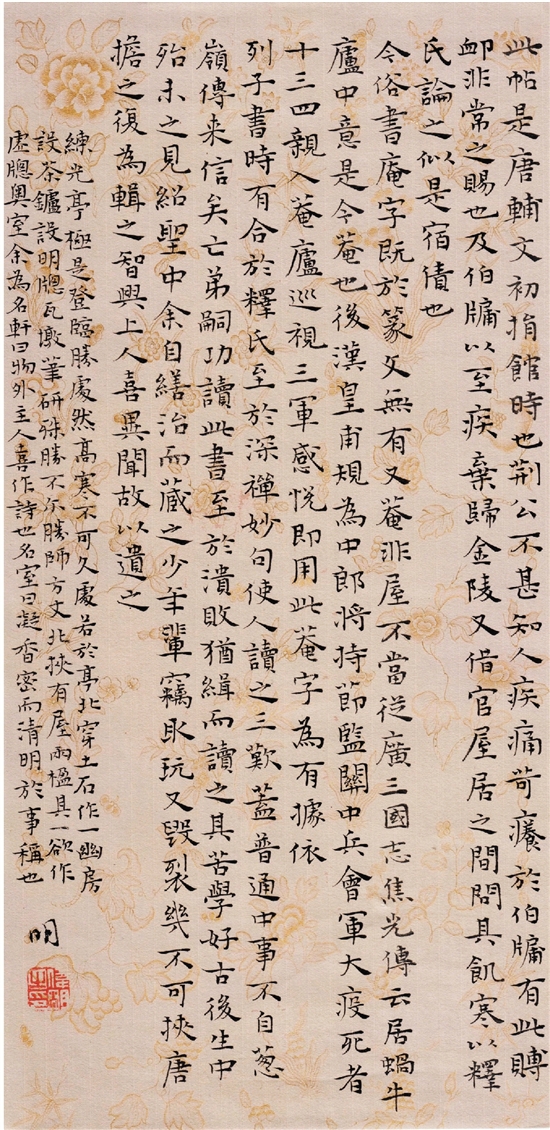 此帖是唐輔文初捐館時也荊公不甚知人疾痛苛癢於伯牖有此賻
卹非常之賜也及伯牖以至疾棄歸金陵又借官屋居之間問其飢寒以釋
氏論之似是宿債也
今俗書庵字既於篆文無有又菴非屋不當從廣三國志焦光傳云居蝸牛
廬中意是今菴也後漢皇甫規為中郎將持節監關中兵會軍大疫死者
十三四親入菴廬巡視三軍感悅即用此菴字為有據依
列子書時有合於釋氏至於深禪妙句使人讀之三歎蓋普通中事不自蔥
嶺傳来信矣亡弟嗣功讀此書至於潰敗猶緝而讀之其苦學好古後生中
殆未之見紹聖中余自繕治而蔵之少年輩竊取玩又毀裂幾不可挾唐
擔之復為輯之智興上人喜異聞故以遺之
練光亭極是登臨勝處然高寒不可久處若於亭北穿土石作一幽房
設茶鑪設明牎瓦墩筆研殊勝不尒勝師方丈北挾有屋兩楹其一欲作
虛牎奧室余為名軒曰物外主人喜作詩也名室曰凝香密而清明於事稱也
明